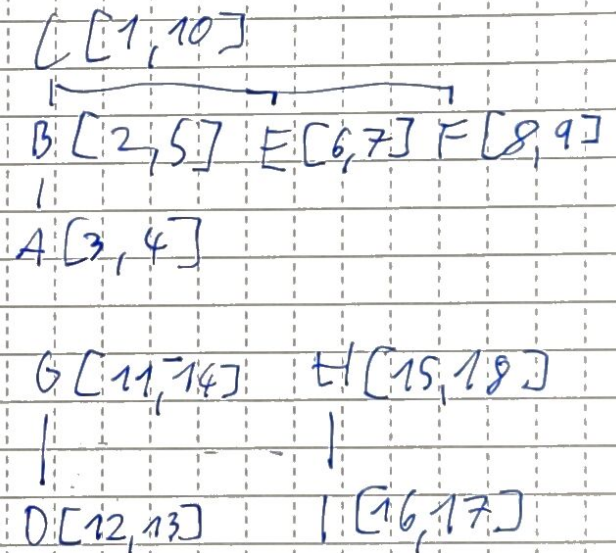 C [1,10]
B [2,5] E [6,7] F [8,9]
A [3,4]
G [11,14] H [15,18]
D [12,13] I [16,17]